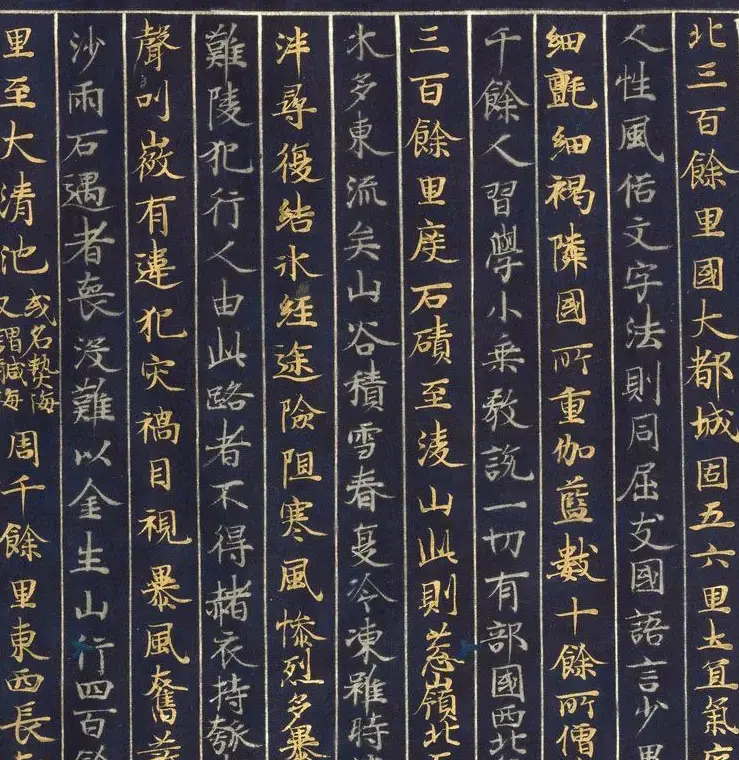 北三百餘里國大都城固五六里土冝氣序
人性風俗文字法則同屈支國語言少異
細㲲細褐隣國所重伽藍數十餘所僧
千餘人習學小乗教說一切有部國西北
三百餘里度石磧至淩山此則蔥嶺北
水多東流矣山谷積雪春夏冷凍雖時
泮尋復結氷經途險阻寒風慘烈多暴
難陵犯行人由此路者不得赭衣持瓠
聲叫㠋有違犯灾禍目視暴風奮
沙雨石遇者喪沒難以全生山行四百餘
里至大清池
或名熱海
又謂鹹海
周千餘里東西長